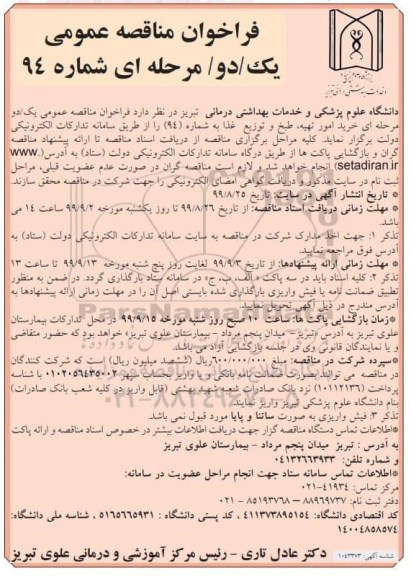 فراخوان مناقصه عمومی
یک/دو/ مرحله ای شماره ۹۴
دانشگاه علوم پزشکی و خدمات بهداشتی درمانی تبریز در نظر دارد فراخوان مناقصه عمومی یک/دو
مرحله ای خرید امور تهیه، طبخ و توزیع غذا به شماره (۹۴) را از طریق سامانه تدارکات الکترونیکی
دولت برگزار نماید. کلیه مراحل برگزاری مناقصه از دریافت اسناد مناقصه تا ارائه پیشنهاد مناقصه
گران و بازگشایی پاکت ها از طریق درگاه سامانه تدارکات الکترونیکی دولت (ستاد) به آدرس(.www
setadiran.ir) انجام خواهد شد و لازم است مناقصه گران در صورت عدم عضویت قبلی، مراحل
ثبت نام در سایت مذکور و دریافت گواهی امضای الکترونیکی را جهت شرکت در مناقصه محقق سازند.
* تاریخ انتشار آگهی در سایت: تاریخ ۹۹/۸/۲۵
* مهلت زمانی دریافت اسناد مناقصه: از تاریخ ۹۹/۸/۲۶ تا روز یکشنبه مورخه ۹۹/۹/۲ ساعت ۱۴ می
باشد.
تذکر ۱: جهت اخذ مدارک شرکت در مناقصه به سایت سامانه تدارکات الکترونیکی دولت (ستاد) به
آدرس فوق مراجعه نمایید.
* مهلت زمانی ارائه پیشنهادها: از تاریخ ۹۹/۹/۳ لغایت روز پنج شنبه مورخه ۹۹/۹/۱۳ تا ساعت ۱۳
تذکر ۲: کلیه اسناد باید در سه پاکت «الف، ب، ج» در سامانه ستاد بارگذاری گردد. در ضمن به منظور
تطبیق ضمانت نامه یا فیش واریزی بارگذاری شده بایستی اصل آن را در مهلت زمانی ارائه پیشنهادها به
آدرس مندرج در ذیل آگهی تحویل نمایید.
* زمان بازگشایی پاکت ها: ساعت ۱۰ صبح روز شنبه مورخه ۹۹/۹/۱۵ در محل تدارکات بیمارستان
علوی تبریز به آدرس «تبریز- میدان پنجم مرداد - بیمارستان علوی تبریز» خواهد بود که حضور متقاضی
و یا نمایندگان قانونی وی در جلسه بازگشایی آزاد می باشد.
* سپرده شرکت در مناقصه: مبلغ ۶۰۰/۰۰۰/۰۰۰ ریال (ششصد میلیون ریال) است که شرکت کنندگان
در مناقصه می توانند بصورت ضمانت نامه بانکی و یا واریز به حساب سپهر ۰۱۰۲۰۵۶۴۳۵۰۰۲ با شناسه
پرداخت (۱۰۱۱۲۱۳۶) نزد بانک صادرات شعبه دانشگاه بهشتی (قابل واریز در کلیه شعب بانک صادرات)
بنام دانشگاه علوم پزشکی تبریز واریز نمایند.
تذکر ۳: فیش واریزی به صورت ساتنا و پایا مورد قبول نمی باشد.
* اطلاعات تماس دستگاه مناقصه گزار جهت دریافت اطلاعات بیشتر در خصوص اسناد مناقصه و ارائه پاکت
به آدرس : تبریز میدان پنجم مرداد - بیمارستان علوی تبریز
و شماره تلفن: ۰۴۱۳۲۶۶۳۹۳۳
*اطلاعات تماس سامانه ستاد جهت انجام مراحل عضویت در سامانه:
مرکز تماس: ۴۱۹۳۴-۰۲۱
دفتر ثبت نام: ۸۸۹۶۹۷۳۷ – ۸۵۱۹۳۷۶۸ - ۰۲۱
کد اقتصادی دانشگاه: ۴۱۱۳۷۳۸۹۵۱۵۴ ، کد پستی دانشگاه : ۵۱۶۵۶۶۵۹۳۱ ، شناسه ملی دانشگاه:
۱۴۰۰۴۸۵۸۵۷۴
دکتر عادل تاری - رئیس مرکز آموزشی و درمانی علوی تبریز
شناسه آگهی: ۱۰۴۳۳۷۳